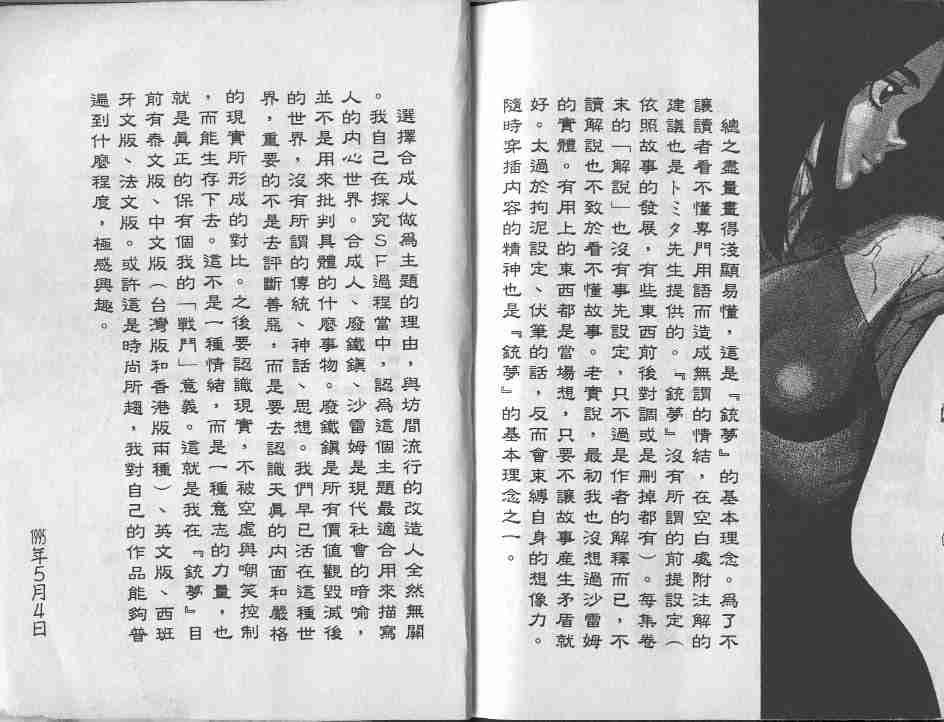 總之盡量畫得淺顯易懂，這是『銃夢』的基本理念。為了不
讓讀者看不懂專門用語而造成無謂的情結，在空白處附注解的
建議也是トミタ先生提供的。『銃夢』沒有所謂的前提設定（
依照故事的發展，有些東西前後對調或是刪掉都有）。每集卷
末的「解說」也沒有事先設定，只不過是作者的解釋而已，不
讀解說也不致於看不懂故事。老實說，最初我也沒想過沙雷姆
的實體。有用上的東西都是當場想，只要不讓故事產生矛盾就
好。太過於拘泥設定、伏筆的話，反而會束縛自身的想像力。
隨時穿插內容的精神也是『銃夢』的基本理念之一。
選擇合成人做為主題的理由，與坊間流行的改造人全然無關
。我自己在探究ＳＦ過程當中，認為這個主題最適合用來描寫
人的內心世界。合成人、廢鐵鎮、沙雷姆是現代社會的暗喻，
並不是用來批判具體的什麼事物。廢鐵鎮是所有價值觀毀滅後
的世界，沒有所謂的傳統、神話、思想。我們早已活在這種世
界，重要的不是去評斷善惡，而是要去認識天真的內面和嚴格
的現實所形成的對比。之後要認識現實，不被空虛與嘲笑控制
，而能生存下去。這不是一種情緒，而是一種意志的力量，也
就是真正的保有個我的「戰鬥」意義。這就是我在『銃夢』目
前有泰文版、中文版（台灣版和香港版兩種）、英文版、西班
牙文版、法文版。或許這是時尚所趨，我對自己的作品能夠普
遍到什麼程度，極感興趣。
1995年5月4日